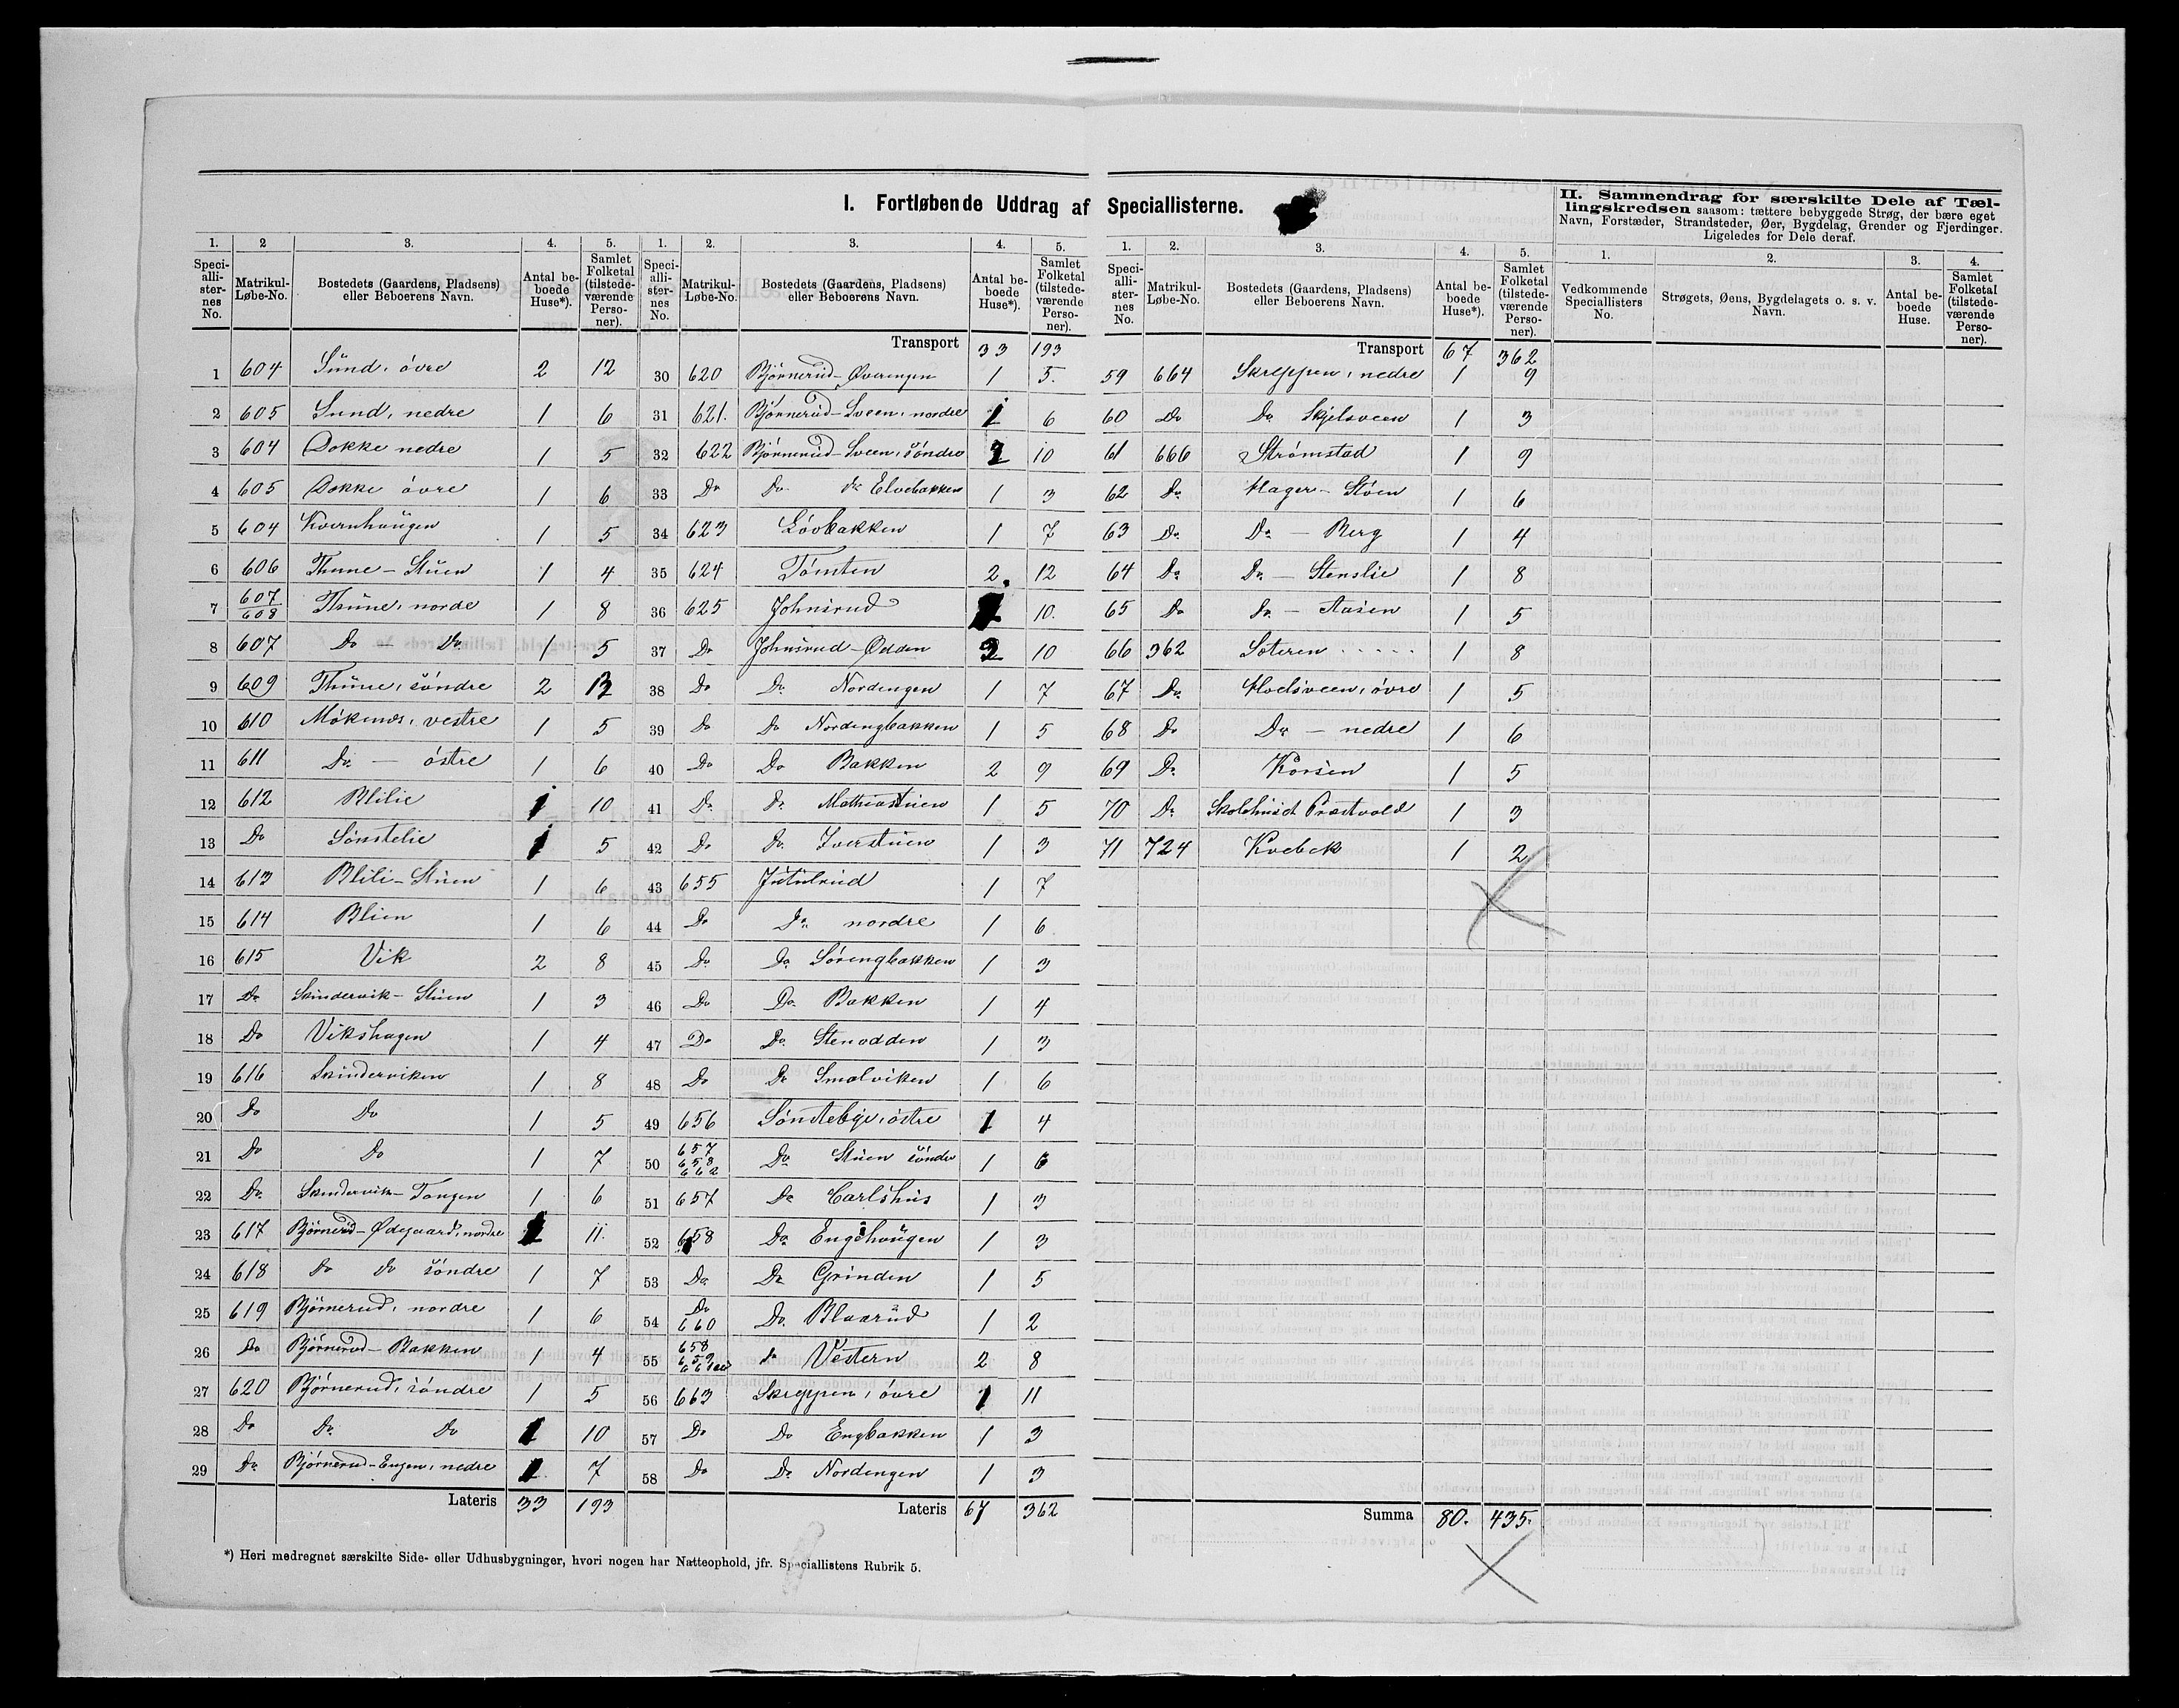 I. Fortløbende Uddrag af Speciallisterne.
II. Sammendrag for særskilte Dele af Tæl-
lingskredsen saasom: tættere bebyggede Strøg, der bære eget
Navn, Forstæder, Strandsteder, Øer, Bygdelag, Grender og Fjerdinger.
Ligeledes for Dele deraf.
1. 2 3. 4. 5.
Speci-alli-ster-nes No. Matrikul-Løbe-No. Bostedets (Gaardens, Pladsens) eller Beboerens Navn. Antal be-boede Huse*). Samlet Folketal (tilstede-værende Perso-ner).
1 604 Sund, övre 2 12
2 605 Sund, nedre 1 6
3 604 Dokke nedre 1 5
4 605 Dokke övre 1 6
5 604 Kvernhaugen 1 5
6 606 Thune - Stuen 1 4
7 607/608 Thune, nordre 1 8
8 607 Do - Do 1 5
9 609 Thune, söndre 2 12
10 610 Mökenes, vestre 1 5
11 611 Do - östre 1 6
12 612 Blilie 1 10
13 Do Sönstelie 1 5
14 613 Blili - Stuen 1 6
15 614 Blien 1 6
16 615 Vik 2 8
17 Do Skindervik - Stuen 1 3
18 Do Vikshagen 1 4
19 616 Skinderviken 1 8
20 Do Do 1 5
21 Do Do 1 7
22 Do Skindervik - Tangen 1 6
23 617 Björnerud - Ødegaard, nordre 11.
24 618 Do Do söndre 1 7
25 619 Björnerud, nordre 1 6
26 Do Björnerud - Bakken 1 4
27 620 Björnerud, söndre 1 5
28 Do Do Do 1 10
29 Do Björnerud - Engen, nedre 7
Lateris 33 193
1. 2. 3. 4. 5.
Speci-alli-ster-nes No. Matrikul-Løbe-No. Bostedets (Gaardens, Pladsens) eller Beboerens Navn. Antal be-boede Huse*). Samlet Folketal (tilstede-værende Perso-ner).
Transport 33 193
30 620 Björnerud - Øverengen 1 5.
31 621. Björnerud - Sveen, nordre 1 6
32 622 Björnerud - Sveen, söndre 10
33 Do Do Do Elvebakken 1 3
34 623 Lövbakken 1 7
35 624 Tömten 2. 12
36 625 Johnsrud 10.
37 Do Johnsrud - Odden 2 10
38 Do Do Nordengen 1 7
39 Do Do Nordengbakken 1 5
40 Do Do Bakken 2 9
41 Do Do Mathiasstuen 1 5
42 Do Do Iverstuen 1 3
43 655 Jutulrud 1 7
44 Do Do nordre 1 6
45 Do Do Sörengbakken 1 3
46 Do Do Bakken 1 4
47 Do Do Stenodden 1 3
48 Do Do Smalviken 1 6
49 656 Sönsteby, östre 1 4
50 657 658 662 Do Stuen söndre 1 6
51 657 Do Carlshus 1 3
52 658 Do Engehaugen 1 3
53 Do Do Grinden 1 5
54 Do 660 Do Blaarud 1 2
55 658 659 Do Vestern 2 8
56 663 Skreppen, övre 1 11
57 Do Do Engbakken 1 3
58 Do Do Nordengen 1 3
Lateris 67 362
1. 2. 3. 4. 5.
Speci-alli-ster-nes No. Matrikul-Løbe-No. Bostedets (Gaardens, Pladsens) eller Beboerens Navn. Antal be-boede Huse*). Samlet Folketal (tilstede-værende Perso-ner).
Transport 67 362
59 664 Skreppen, nedre 1 9
60 Do Do Skjelsveen 1 3
61 666 Strømstad 1 9
62 Do Hager - Stöen 1 6
63 Do Do - Berg 1 4
64 Do Do - Stenslie 1 8
65 Do Do - Aasen 1 5
66 362 Soteren 1 8
67 Do Moesveen, övre 1 5
68 Do Do - nedre 1 6
69 Do Korsen 1 5
70 Do Skolehuset Præstvold 1 3
71 724 Kvebek 1 2
Summa 80. 435.
1. 2. 3. 4.
Vedkommende Speciallisters No. Strøgets, Øens, Bygdelagets o. s. v. Navn. Antal be-boede Huse. Samlet Folketal (tilstede-værende Perso-ner).
*) Heri medregnet særskilte Side- eller Udhusbygninger, hvori nogen har Natteophold, jfr. Speciallistens Rubrik 5.